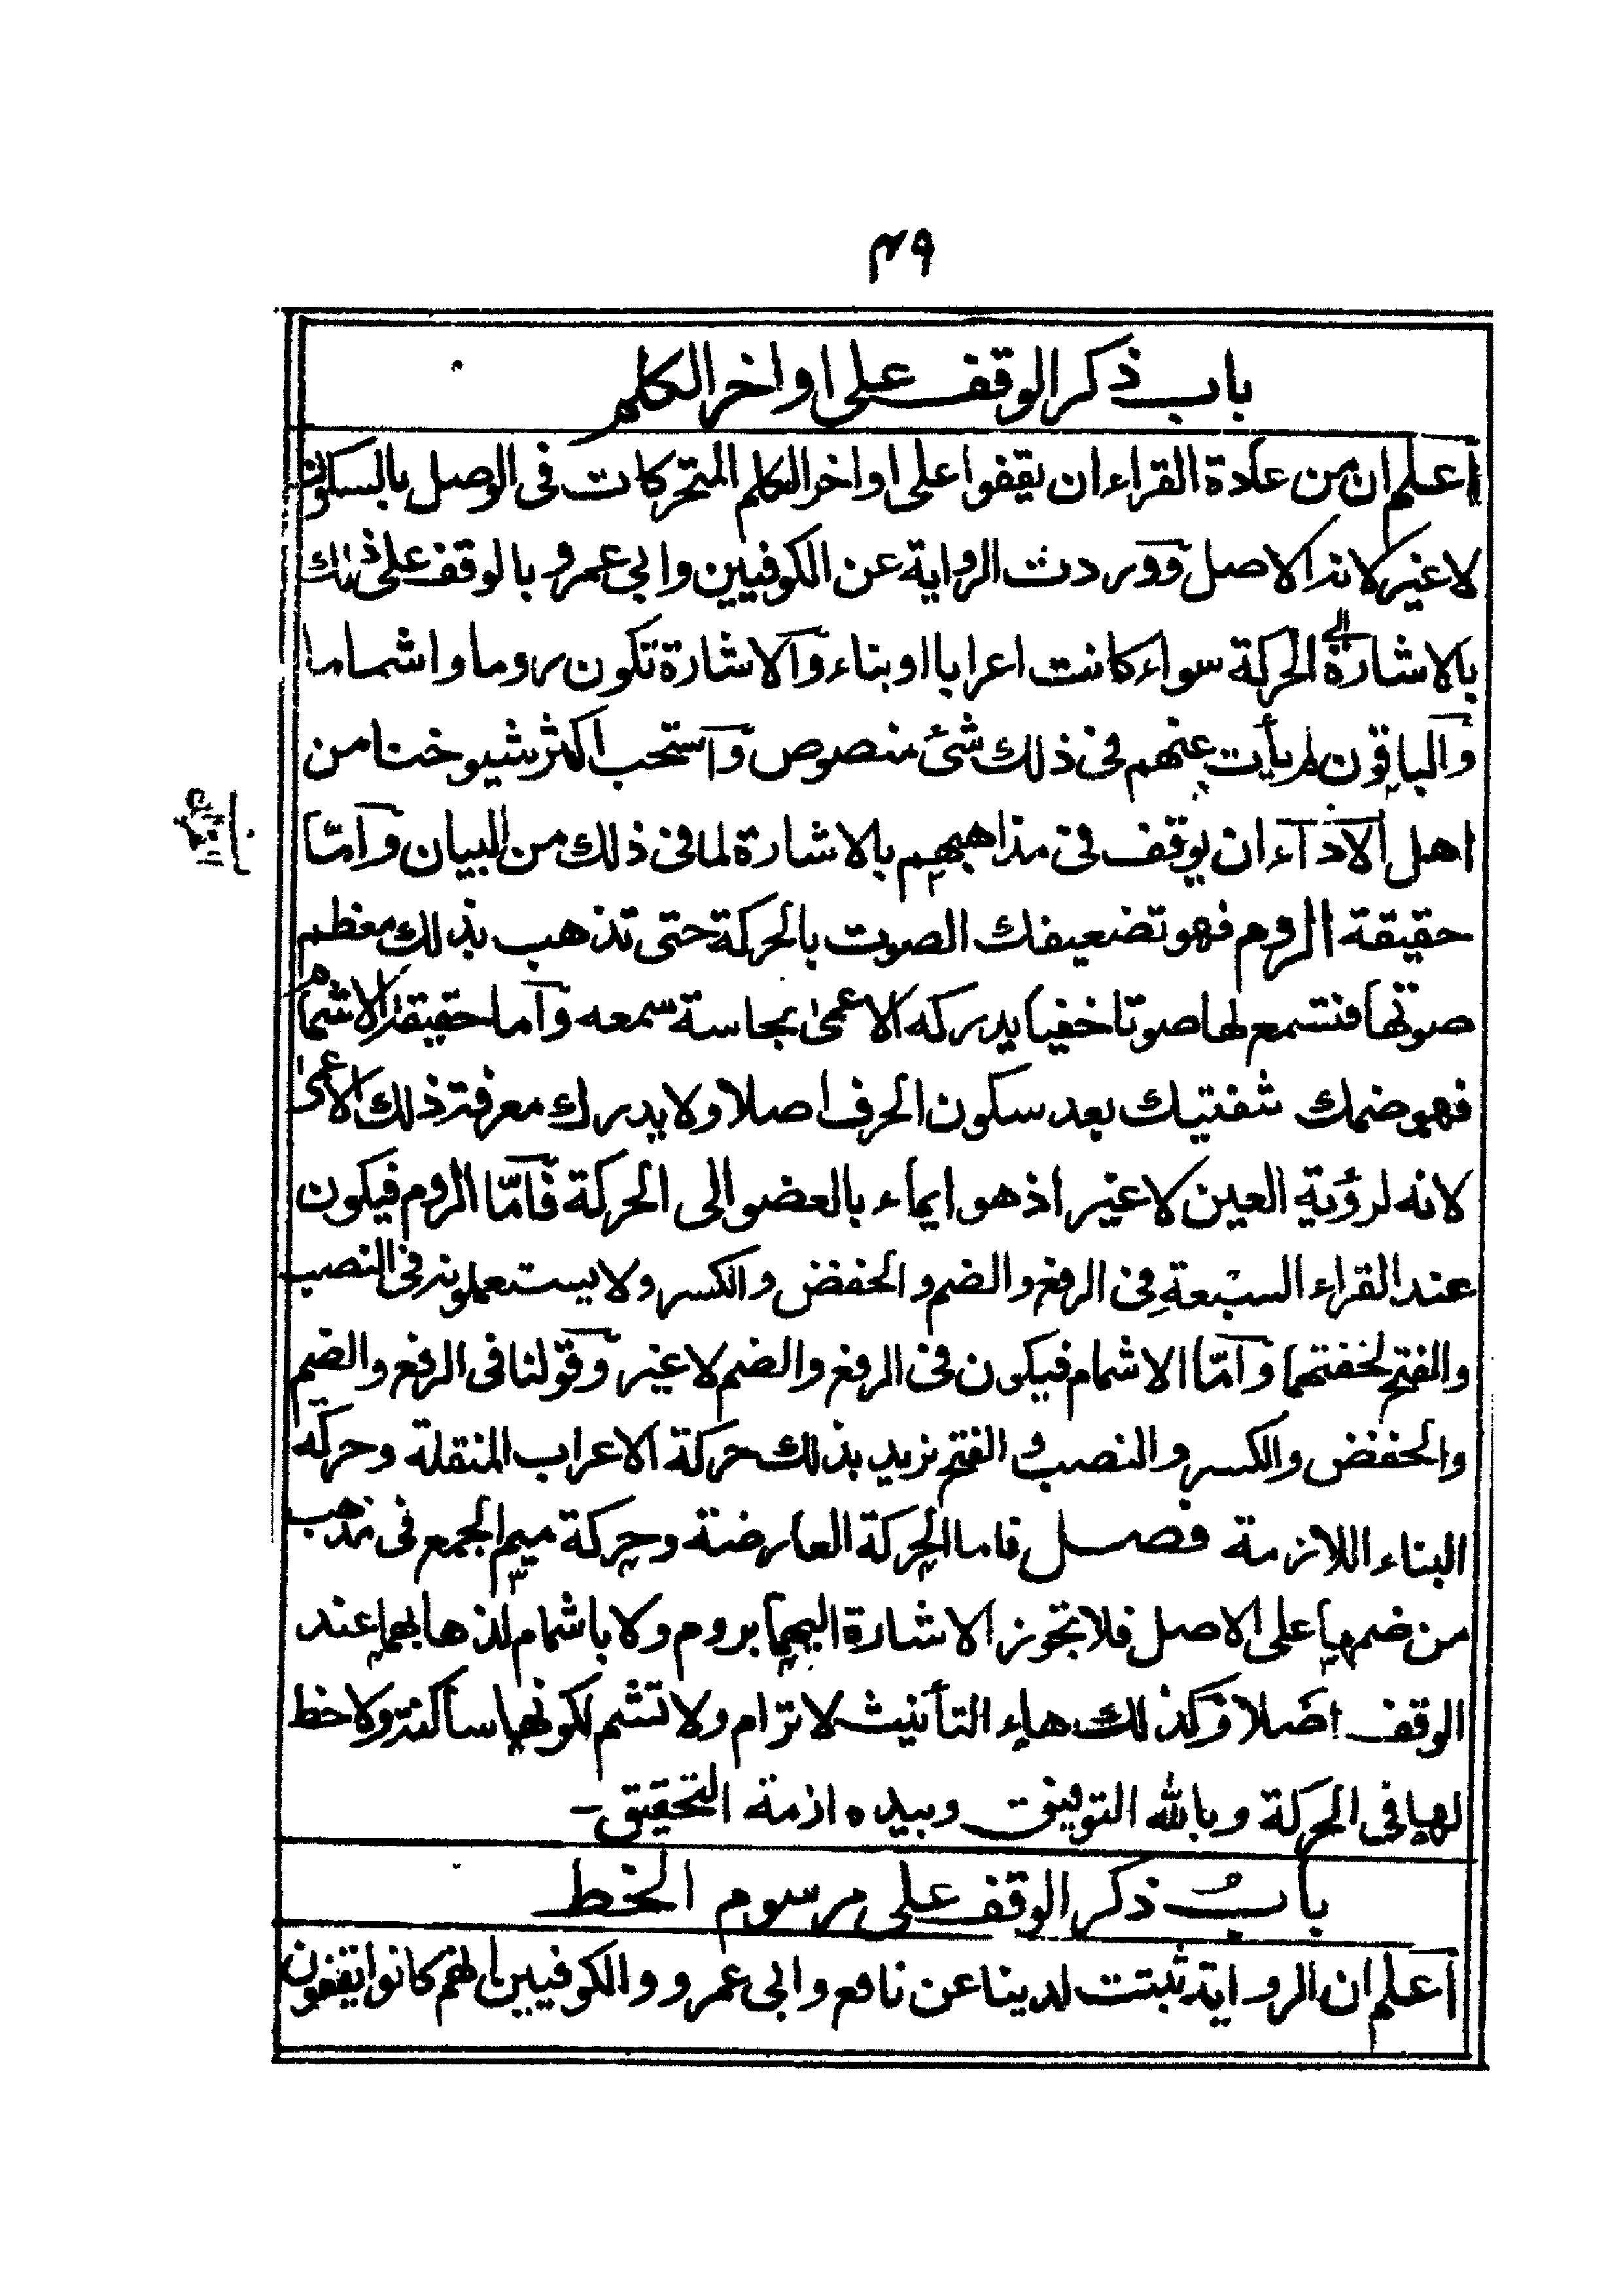 ٤٩
باب ذكر الوقف على اواخر الكلم
اعلم ان من عادة القراء ان يقفوا على اواخر الكلم المتحركات فى الوصل بالسكون
لا غير لانه الاصل ووردت الرواية عن الكوفيين وابى عمرو بالوقف على ذلك
بالاشارة الى الحركة سواء كانت اعرابا او بناء والاشارة تكون روما واشماما
والباقون لم يأت عنهم فى ذلك شئ منصوص واستحب اكثر شيوخنا من
اهل الاداء ان يوقف فى مذاهبهم بالاشارة لما فى ذلك من البيان وامّا
حقيقة الروم فهو تضعيفك الصوت بالحركة حتى تذهب بذلك معظم
صوتها فتسمع لها صوتا خفيا يدركه الاعمى بحاسة سمعه واما حقيقة الاشمام
فهو ضمك شفتيك بعد سكون الحرف اصلا ولا يدرك معرفة ذلك الاعمى
لانه لرؤية العين لا غير اذ هو ايماء بالعضو الى الحركة فامّا الروم فيكون
عند القراء السبعة فى الرفع والضم والخفض والكسر ولا يستعملونه فى النصب
والفتح لخفتهما وامّا الاشمام فيكون فى الرفع والضم لا غير وقولنا فى الرفع والضم
والخفض والكسر والنصب والفتح نريد بذلك حركة الاعراب المنتقلة وحركة
البناء اللازمة فصل فاما الحركة العارضة وحركة ميم الجمع فى مذهب
من ضمها على الاصل فلا تجوز الاشارة اليهما بروم ولا باشمام لذهابهما عند
الوقف اصلا وكذلك هاء التأنيث لا ترام ولا تشم لكونها ساكنة ولا حظ
لها فى الحركة وبالله التوفيق وبيده ازمة التحقيق -
باب ذكر الوقف على مرسوم الخط
اعلم ان الرواية ثبتت لدينا عن نافع وابى عمرو والكوفيين انهم كانوا يقفون